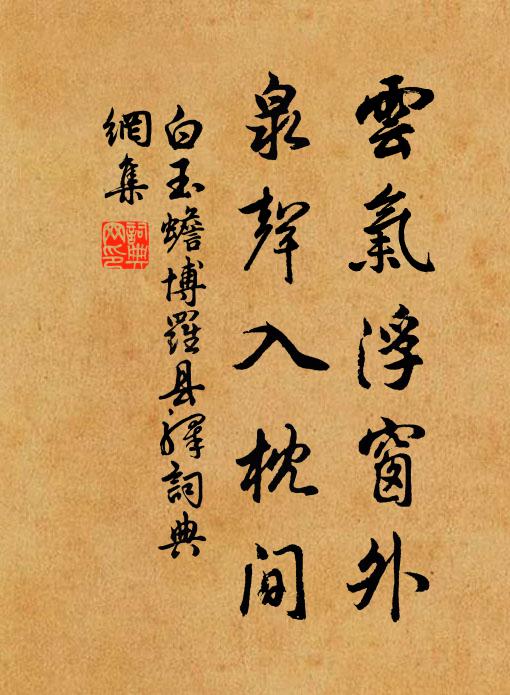 雲氣浮窗外
泉聲入枕間
白玉蟾博羅县驛詞典
網集
詞典
网印